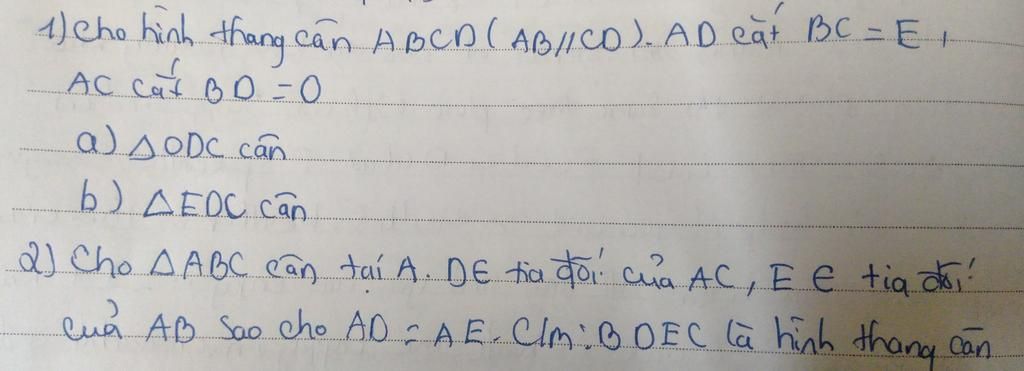 1) Cho hình thang cân ABCD (AB//CD). AD cắt BC = E,
AC cắt BD = O
a) △ODC cân
b) △EDC cân
2) Cho △ABC cân tại A. D∈ tia đối của AC, E ∈ tia đối
của AB sao cho AD = AE. C/m: BDEC là hình thang cân